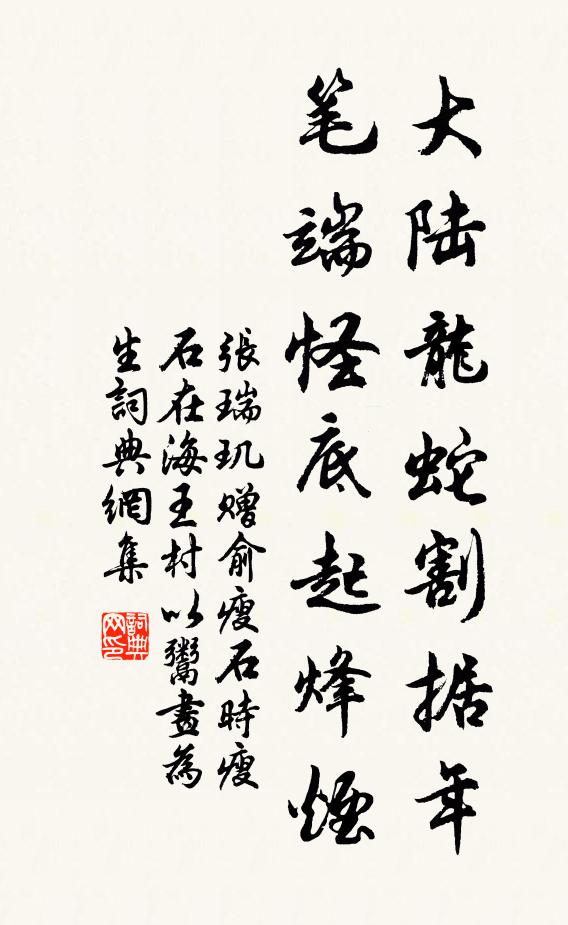 大陆龍蛇割据年
笔端怪底起烽煙
張瑞玑赠俞瘦石時瘦
石在海王村以鬻畫為
生詞典網集
詞典
网印